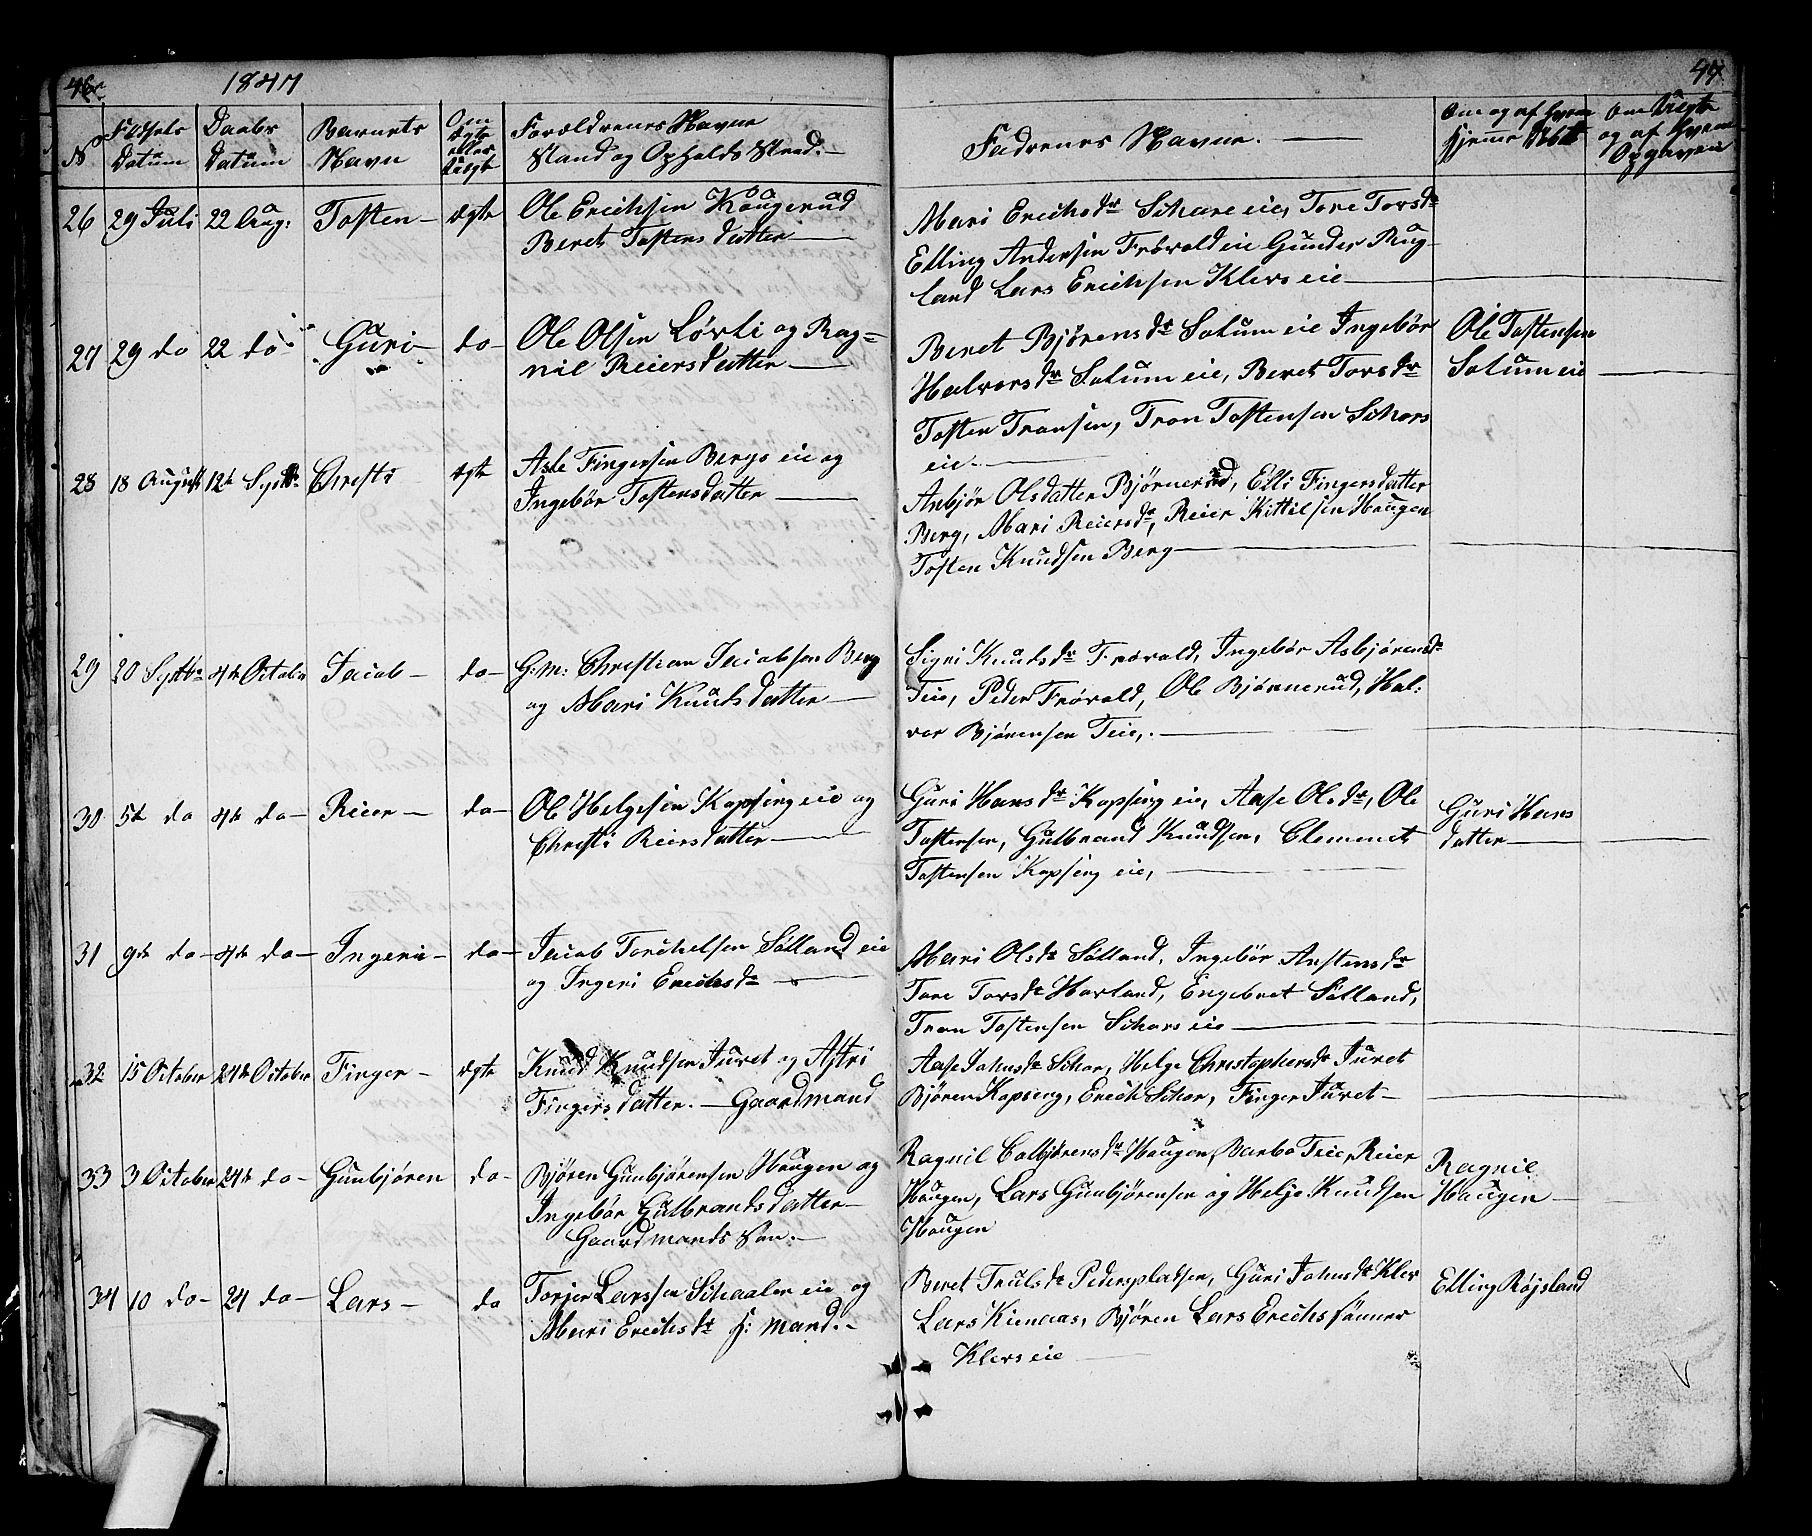 46 1847 47
No Fødsels Datum Daabs Datum Barnets Navn Om Ægte eller Uægt Forældrenes Navne Stand og Opholds Sted. Fadrenes Navne. Om og af hvem hjemme døbt Om Uægte og af hvem Opgaven
26 29 Juli 22 Aug: Tosten ægte Ole Erichsen Kougerud
Beret Tostens datter
Mari Erichsdr Schare eie, Tore Torsdr
Elling Andersen Frøvold eie Gunder Rug-
land Lars Erichsen Klevs eie
27 29 do 22 do Guri do Ole Olsen Lövli og Rag=
nil Reiersdatter
Beret Bjørensdr Solum eie Ingebör
Halvorsdr Solum eie, Beret Torsdr
Tosten Tronsen, Tron Tostensen Schars
eie.
Ole Tostensen
Solum eie
28 18 August 12te Septbr Christi ægte Asle Fingersen Bergs eie og
Ingebör Tostensdatter
Anbjör Olsdatter Bjørnerud, Elli Fingersdatter
Berg, Mari Reiersdr, Reier Kittilsen Haugen
Tosten Knudsen Berg
29 20 Septbr 4de October Jacob do G: M: Christian Jacobsen Berg
og Mari Knudsdatter
Sigri Knudsdr Frøvold, Ingebör Asbjørensdr
Teie, Peder Frövold, Ole Bjørnerud, Hal:
vor Bjørensen Teie,.
30 5te do 4de do Reier do Ole Helgesen Kopseng eie og
Christi Reiersdatter
Guri Hansdr Kopseng eie, Aase Olsdr, Ole
Tostensen, Gulbrand Knudsen, Clement
Tostensen Kopseng eie,
Guri Hans
datter
31 9de do 4de do Ingeri do Jacob Torchelsen Sølland eie
og Ingeri Erichsdr
Mari Olsdr Sølland, Ingebör Anstensdr
Tore Torsdr Hovland, Engebret Sølland,
Tron Tostensen Schars eie
32 15 October 24de October Finger ægte Knud Knudsen Juvet og Astri
Fingers datter. Gaardmand
Aase Johnsdr Schar, Helge Christophersdr Juvet
Björen Kopseng, Erich Schar, Finger Juvet
33 3 October 24de do Gunbjøren do Bjøren Gunbjörensen Haugen og
Ingebör Gulbrandsdatter
Gaardmands Søn.
Ragnil Colbjörensdr Haugen, Barbo Teie, Reier
Haugen, Lars Gunbjörensen og Helge Knudsen
Haugen
Ragnil
Haugen
34 10 do 24 do Lars do Torjer Larssen Schaalen eie og
Mari Erichsdr H: mand.
Beret Trulsdr Pederspladsen, Guri Johnsdr Klev
Lars Kinaas, Björen Lars Erichs sønner
Klevs eie
Elling Røjsland